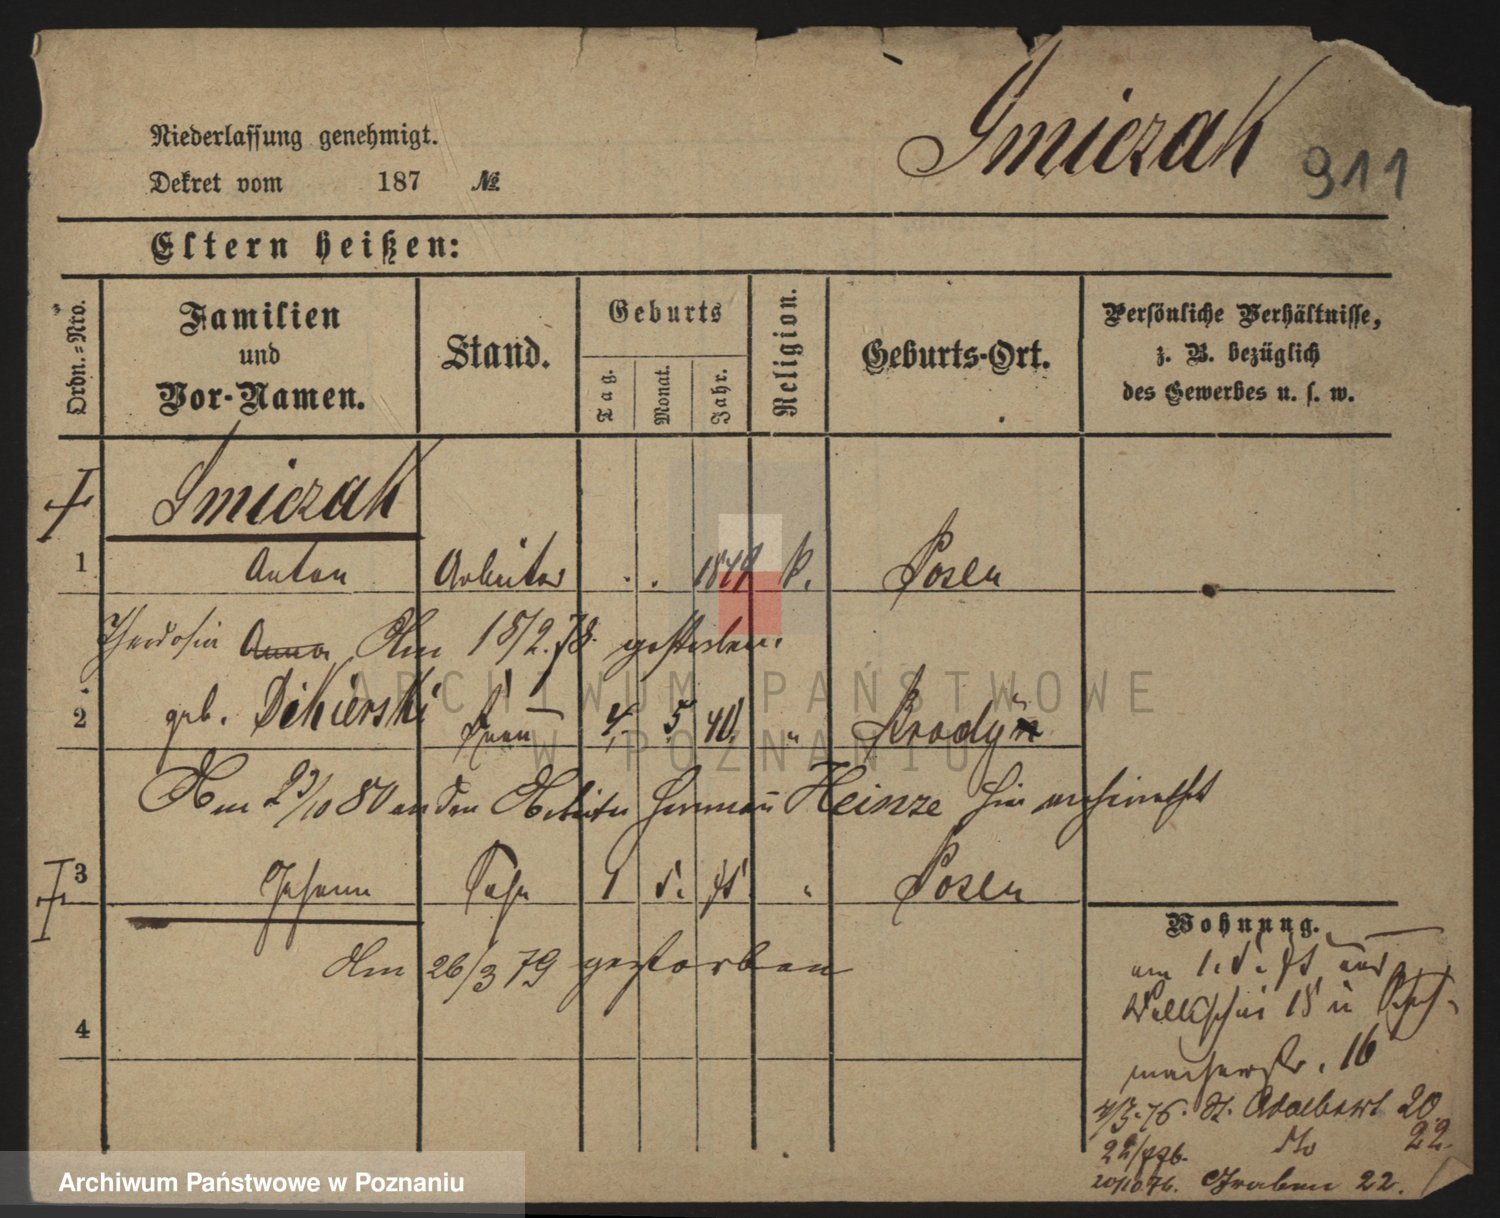 Smiczak 911
Niederlassung genehmigt.
Dekret vom 187 №
Eltern heißen:
Ordn.-Nro.
Familien
und
Vor-Namen.
Stand.
Geburts
Tag.
Monat.
Jahr.
Religion.
Geburts-Ort.
Persönliche Verhältnisse,
z. B. bezüglich
des Gewerbes u. s. w.
Smiczak
1 Anton Arbeiter . . 1849 k. Posen
Theodosia Anna Am 15/2.78. gestorben.
2 geb. Dikierski Frau 4. 5. 40. " Brody
Am 23/10 80 an den Arbeiter Hermann Heinze hier verheirathet
3 Johann Sohn 1 5. 75. " Posen
Am 26/3 79 gestorben
4
Wohnung.
am 1. 5. 75 aus
Wallischei 15 n Schuh-
macherstr. 16
4/3.76. St. Adalbert 20.
22/776. do 22.
20/10 76. Graben 22.
ARCHIWUM PAŃSTWOWE
W POZNANIU
Archiwum Państwowe w Poznaniu